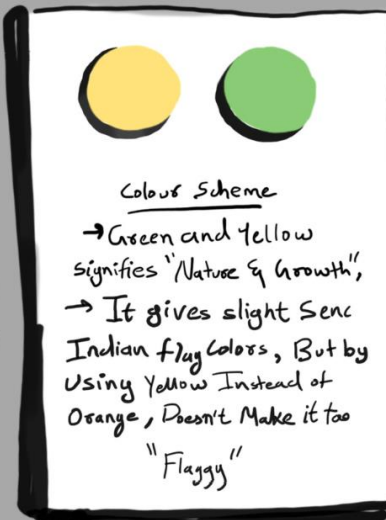 Colour Scheme
→ Green and Yellow
signifies "Nature & Growth",
→ It gives slight Senc
Indian flag Colors, But by
Using Yellow Instead of
Orange, Doesn't Make it too
"Flaggy"